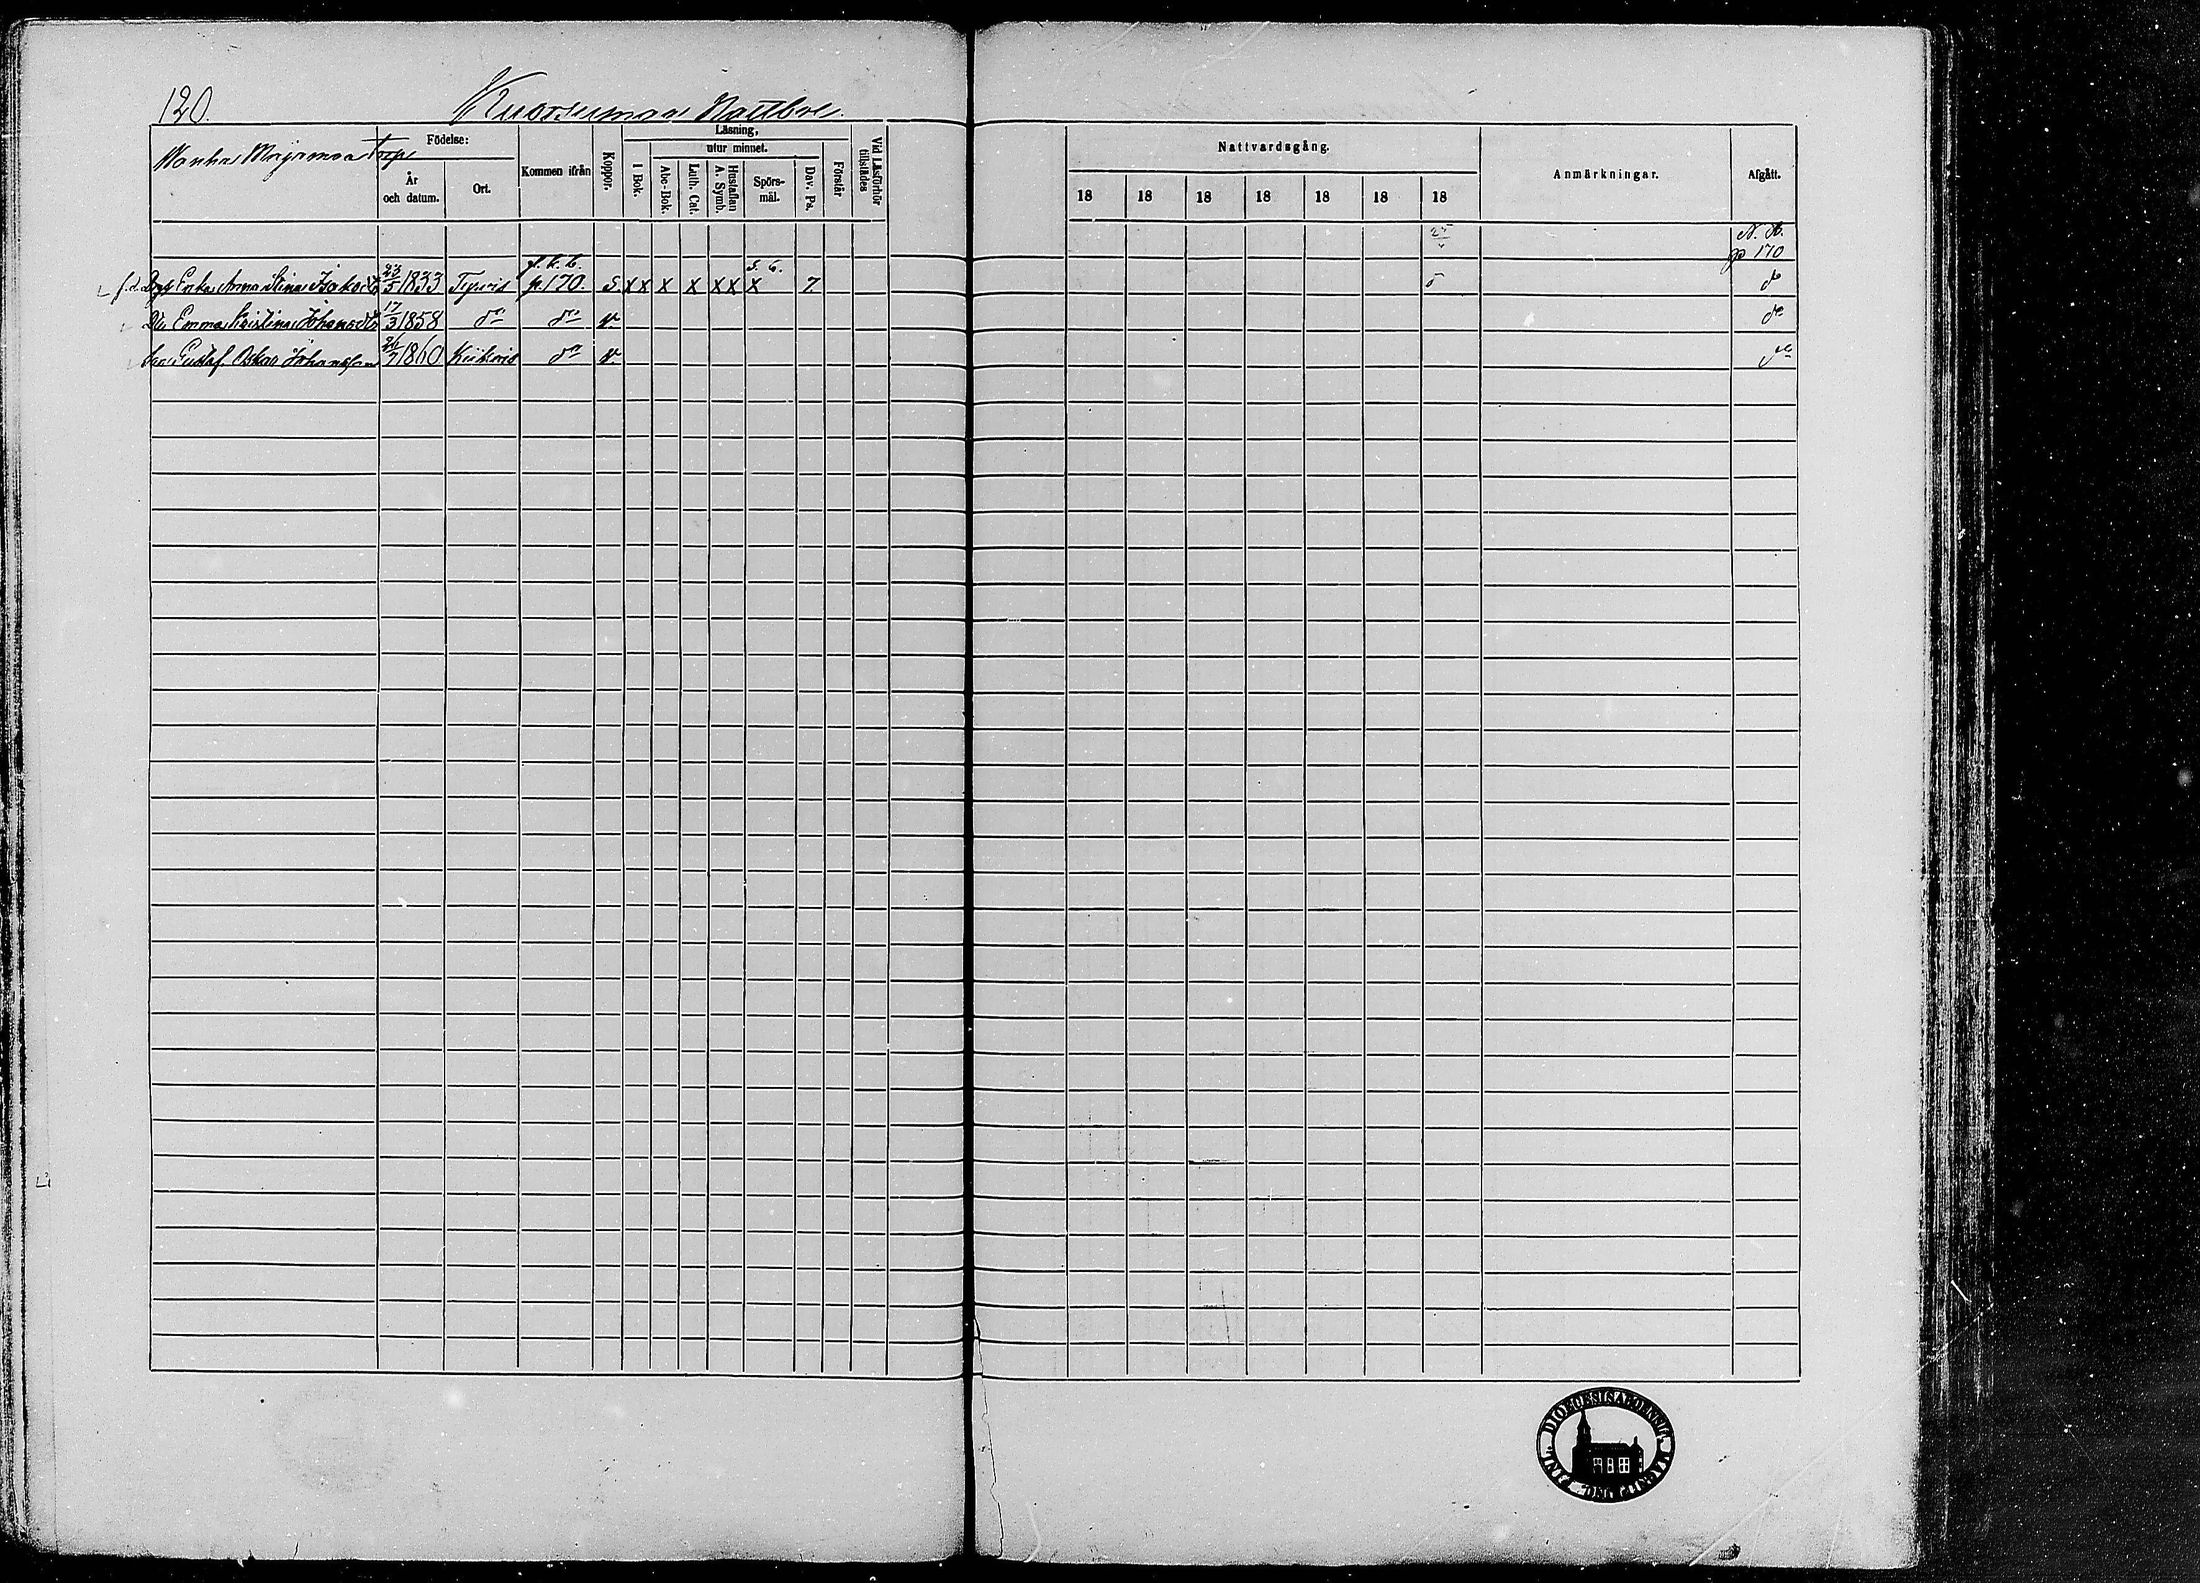 120.
Wanha Majamaa Torp
Födelse:
År och datum.
Ort.
Kommen ifrån
Koppor.
Läsning,
utur minnet.
I Bok.
Abc-Bok.
Luth. Cat.
Hustaflan A. Symb.
Spörs-mål.
Dav. Ps.
Förstår
Vid Läsförhör tillstädes
Nattvardsgång.
18 18 18 18 18 18 18
Anmärkningar.
Afgått.
N. B.
p 170
f. k. b. 5. 6.
f. d. Enka Anna Stina Jakobsdr 23/5 1833 Tyrvis p. 170. S. X X X X X X X 7.
Dr Emma Kristina Johansdr 17/3 1858 do do v. do
Son Gustaf Oskar Johansson 26/7 1860 Kiikois do v. do